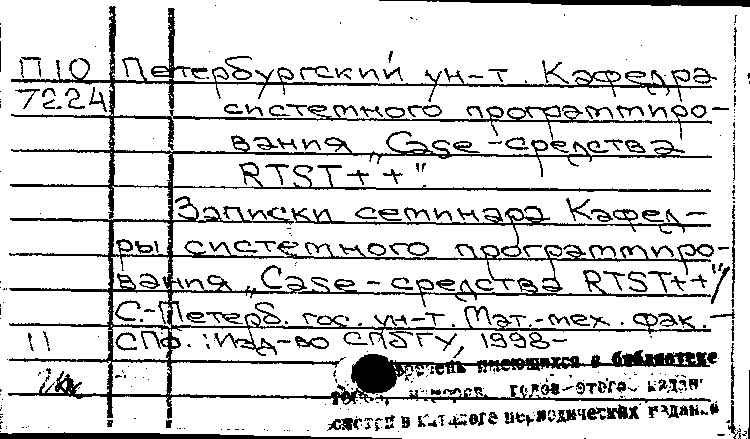 П10 Петербургский ун-т. Кафедра
7224 системного программиро-
вания „Case-средства
RTST++".
Записки семинара Кафед-
ры системного программиро-
вания „Case-средства RTST++"/
С.-Петерб. гос. ун-т. Мат.-мех. фак. -
11 СПб.: Изд-во СПбГУ, 1998-
Перечень имеющихся в библиотеке
томов, номеров, годов этого издан
смотри в каталоге периодических издан